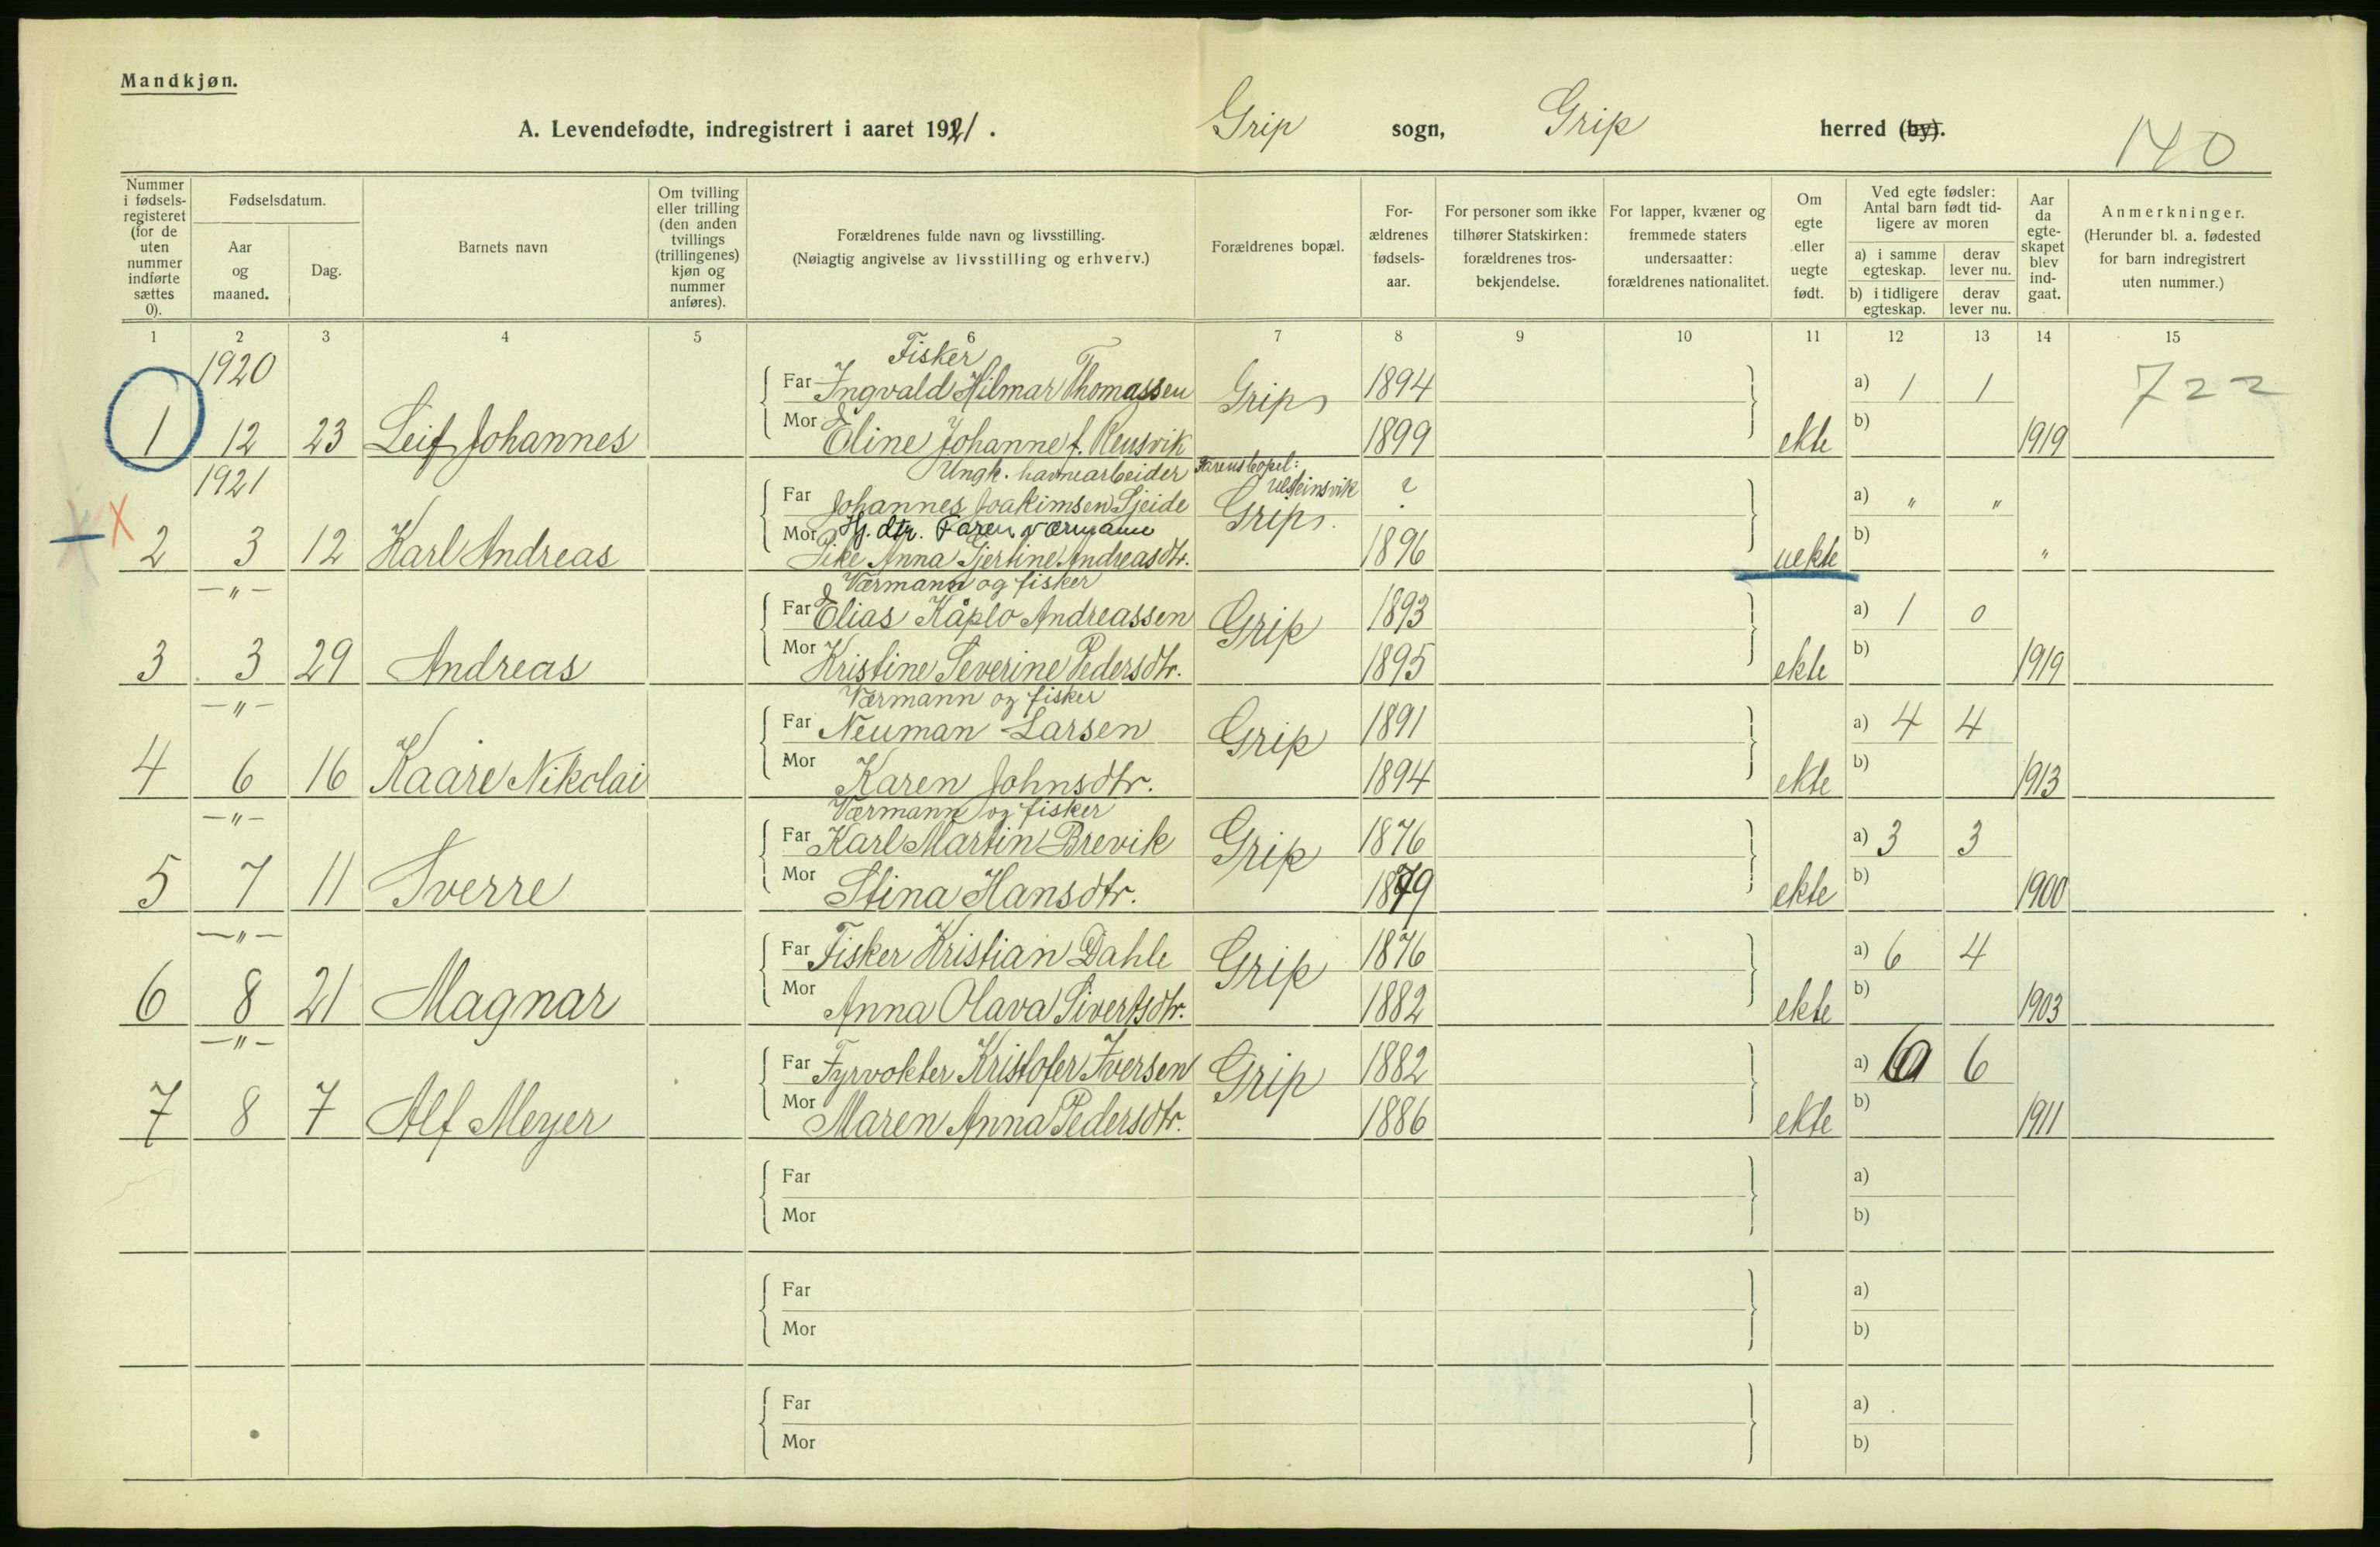 Mandkjøn.
A. Levendefødte, indregistrert i aaret 1921. Grip sogn, Grip herred (by).
140
Nummer i fødselsregisteret (for de uten nummer indførte sættes 0).
Fødselsdatum.
Aar og maaned.
Dag.
Barnets navn
Om tvilling eller trilling (den anden tvillings (trillingenes) kjøn og nummer anføres).
Forældrenes fulde navn og livsstilling.
(Nøiagtig angivelse av livsstilling og erhverv.)
Forældrenes bopæl.
Forældrenes fødselsaar.
For personer som ikke tilhører Statskirken: forældrenes trosbekjendelse.
For lapper, kvæner og fremmede staters undersaatter: forældrenes nationalitet.
Om egte eller uegte født.
Ved egte fødsler: Antal barn født tidligere av moren
a) i samme egteskap. derav lever nu.
b) i tidligere egteskap. derav lever nu.
Aar da egteskapet blev indgaat.
Anmerkninger.
(Herunder bl. a. fødested for barn indregistrert uten nummer.)
1 2 3 4 5 6 7 8 9 10 11 12 13 14 15
1920 Fisker
Far Ingvald Hilmar Thomassen Grip 1894 a) 1 1 722
1 12 23 Leif Johannes Mor Eline Johanne f. Reusvik 1899 ekte b) 1919
1921 Ungk. havnearbeider Farens bopel: Ulsteinsvik
Far Johannes Joakimsen Sjeide Grip. ? a) " "
Mor Hj. dtr. Faren værmann
2 3 12 Karl Andreas Pike Anna Gjertine Andreasdtr. 1896 uekte b) "
—"— Værmann og fisker
Far Elias Kåplo Andreassen Grip 1893 a) 1 0
3 3 29 Andreas Mor Kristine Severine Pedersdtr. 1895 ekte b) 1919
—"— Værmann og fisker
Far Neuman Larsen Grip 1891 a) 4 4
4 6 16 Kaare Nikolai Mor Karen Johnsdtr. 1894 ekte b) 1913
—"— Værmann og fisker
Far Karl Martin Brevik Grip 1876 a) 3 3
5 7 11 Sverre Mor Stina Hansdtr. 1879 ekte b) 1900
—"— Far Fisker Kristian Dahle Grip 1876 a) 6 4
6 8 21 Magnar Mor Anna Olava Sivertsdtr. 1882 ekte b) 1903
—"— Far Fyrvokter Kristofer Iversen Grip 1882 a) 6
7 8 7 Alf Meyer Mor Maren Anna Pedersdtr. 1886 ekte b) 1911
Far a)
Mor b)
Far a)
Mor b)
Far a)
Mor b)